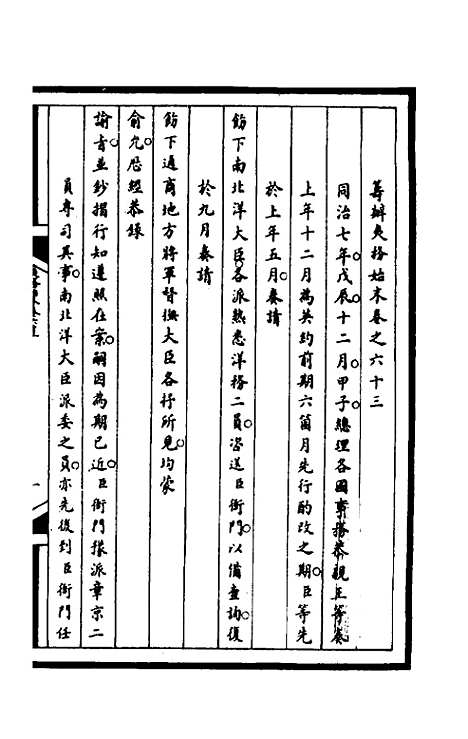 籌辦夷務始末卷之六十三
同治七年戊辰十二月甲子總理各國事務恭親王等奏
上年十二月為英約前期六箇月先行酌改之期臣等先
於上年五月奏請
飭下南北洋大臣各派熟悉洋務二員咨送臣衙門以備查詢復
於九月奏請
飭下通商地方將軍督撫大臣各抒所見均蒙
俞允歷經恭錄
諭旨並鈔摺行知遵照在案嗣因為期已近臣衙門擬派章京二
員專司其事南北洋大臣派委之員亦先後到臣衙門任